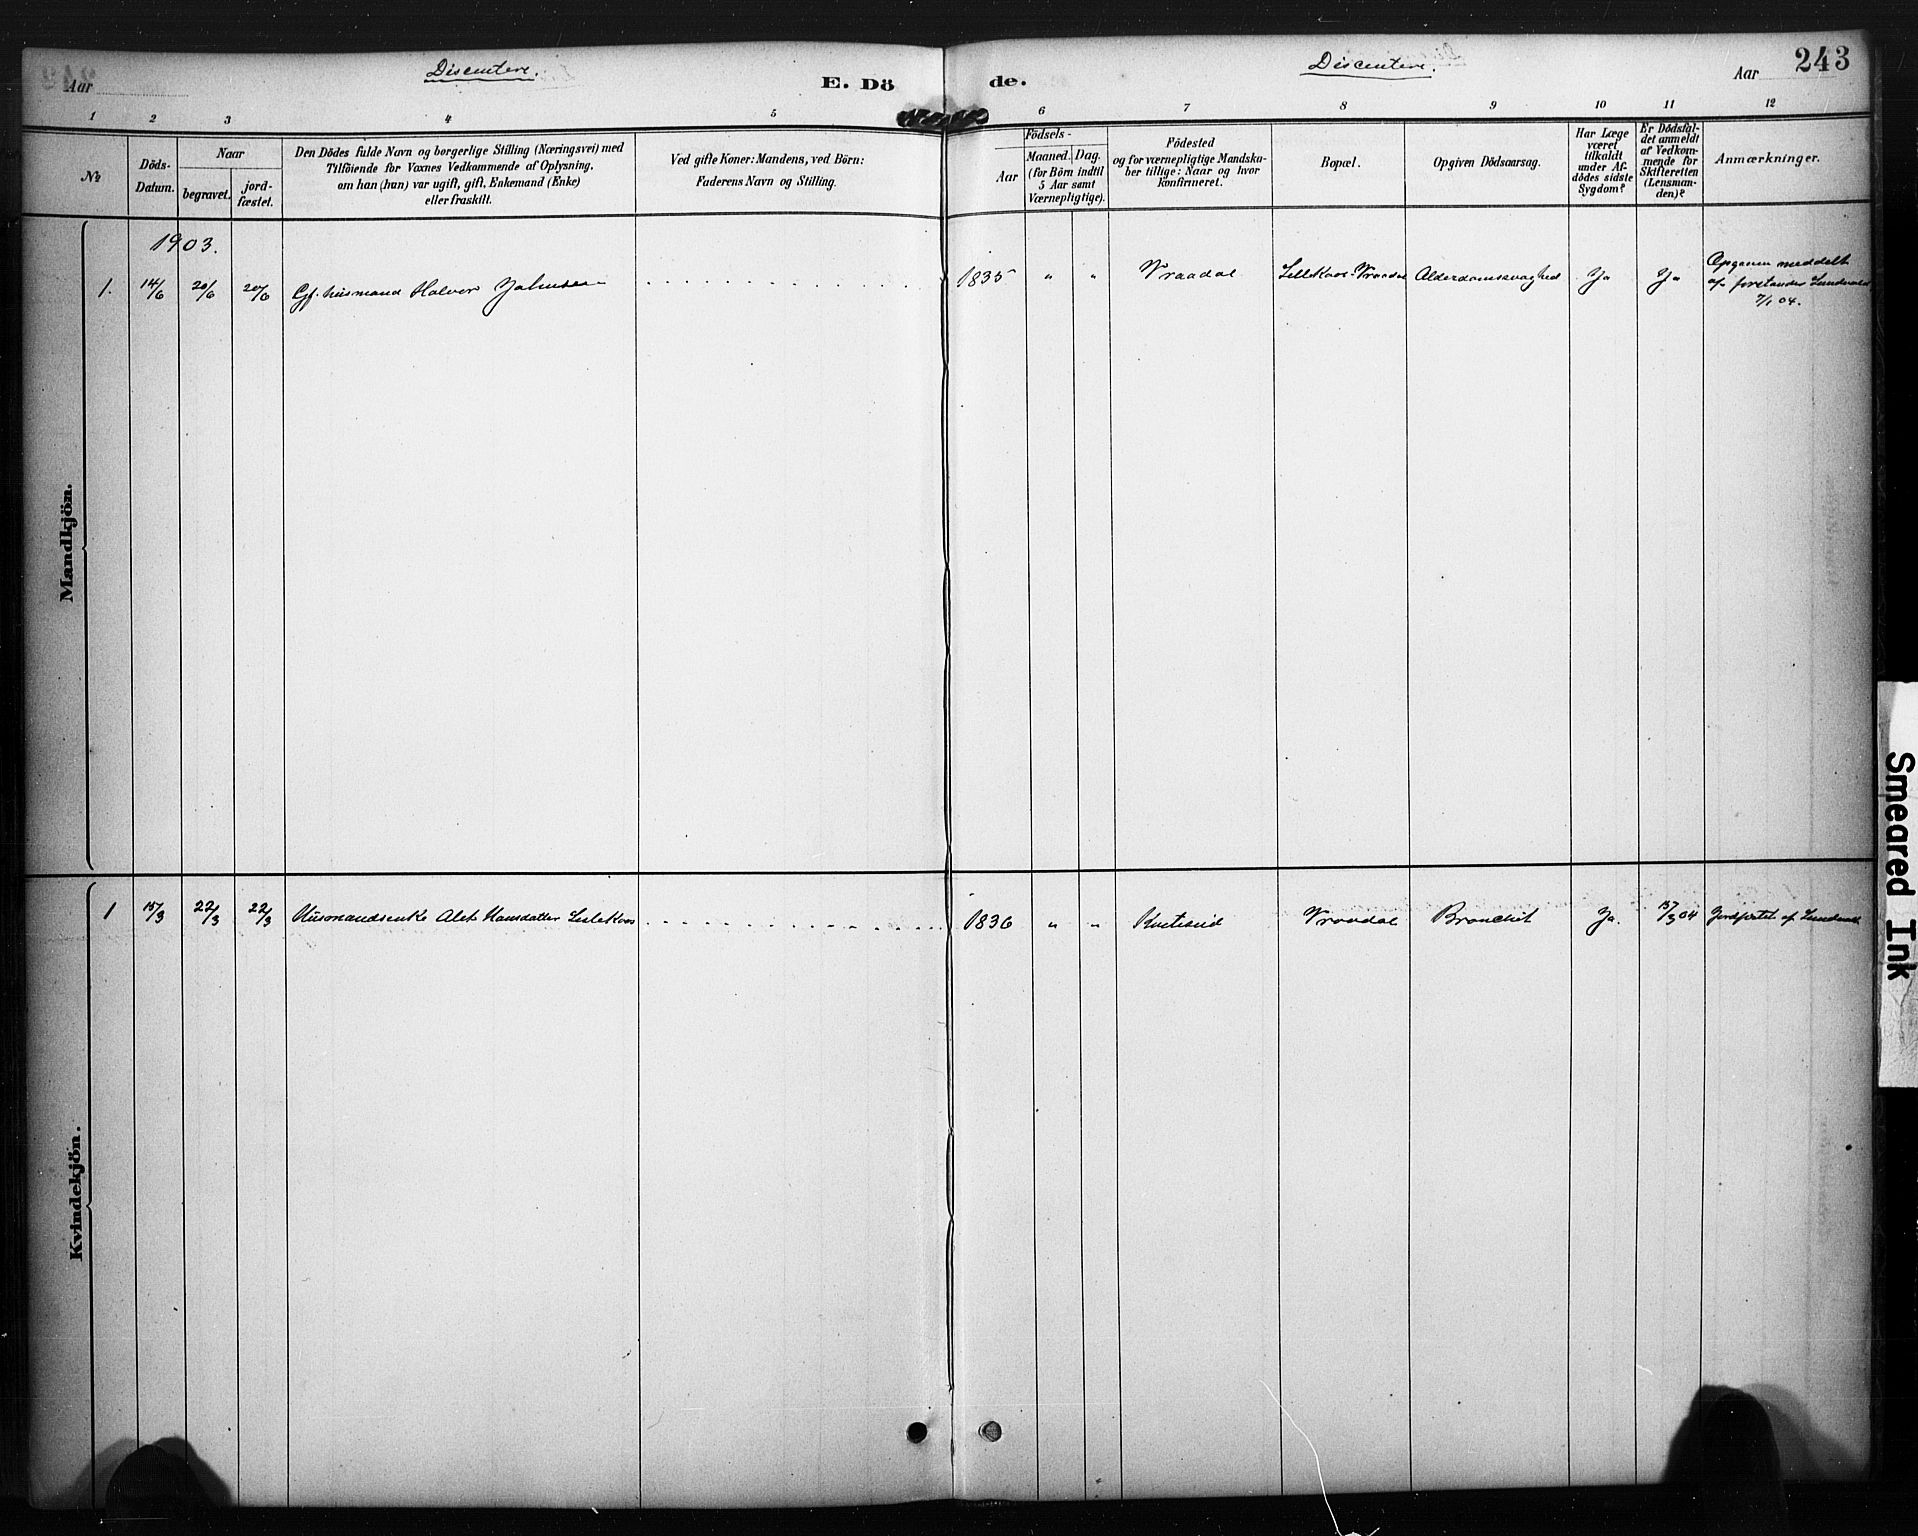 Aar
Discentere.
E. Dö
de.
Discentere.
Aar
243
1 2 3 4 5 6 7 8 9 10 11 12
№
Döds-
Datum.
Naar
begravet.
jord-
fæstet.
Den Dödes fulde Navn og borgerlige Stilling (Næringsvei) med
Tilföiende for Voxnes Vedkommende af Oplysning,
om han (hun) var ugift, gift, Enkemand (Enke)
eller fraskilt.
Ved gifte Koner: Mandens, ved Börn:
Faderens Navn og Stilling.
Födsels-
Aar
Maaned. Dag.
(for Börn indtil
5 Aar samt
Værnepligtige).
Födested
og for værnepligtige Mandska-
ber tillige: Naar og hvor
konfirmeret.
Bopæl.
Opgiven Dödsaarsag.
Har Læge
været
tilkaldt
under Af-
dödes sidste
Sygdom?
Er Dödsfal-
det anmeldt
af Vedkom-
mende for
Skifteretten
(Lensman-
den)?
Anmærkninger.
Mandkjön.
1903.
1. 14/6 20/6 20/6 Gf. husmand Halvor Johnsen 1835 " " Vraadal Lillekaas-Vraadal Alderdomssvaghed Ja Ja
meddelt
af forstander
7/1 04.
Kvindekjön.
1 15/3 22/3 22/3 Husmandsenke Hansdatter Lillekaas 1836 " " Kviteseid Vraadal Bronchit Ja. 15/3 04 Jordfestet af
Smeared Ink